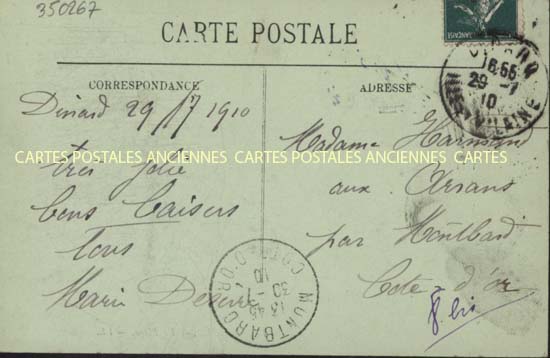 350267
CARTE POSTALE
CORRESPONDANCE
ADRESSE
Dinard 29/7 1910
très jolie
bons baisers
Tous
Marie
Madame Harmand
aux Arrans
par Montbard
Côte d'or
16.55
29-7
10
VILAINE
MONTBARD
CÔTE-D'OR
13 45
30-7
10
CARTES POSTALES ANCIENNES CARTES POSTALES ANCIENNES CARTES